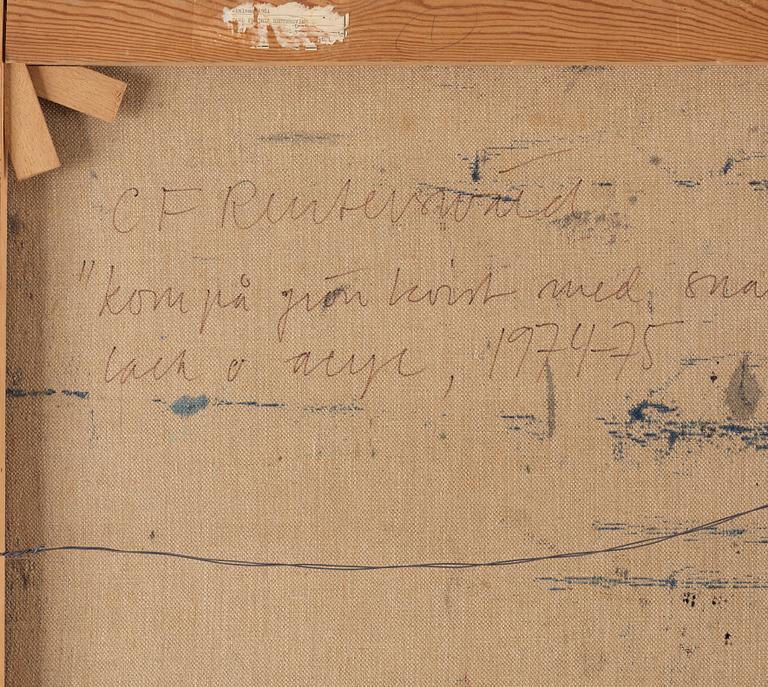 CF Reuterswärd
"kom på grön kvist med sna
lack o acryl, 1974-75